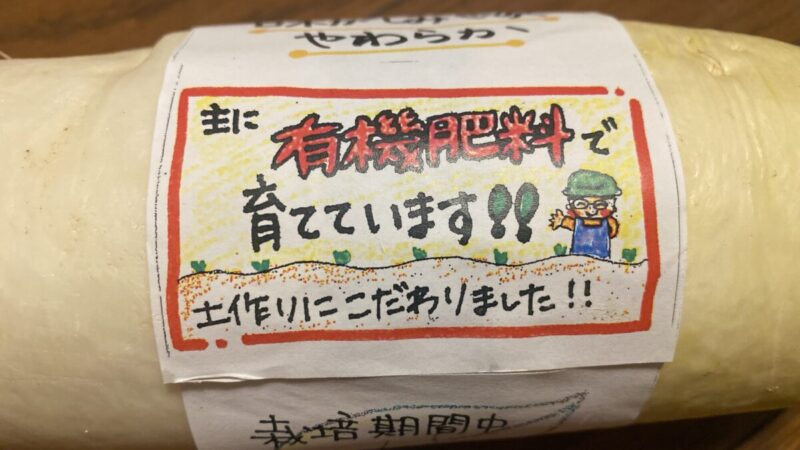 やわらか
主に
有機肥料で
育てています!!
土作りにこだわりました!!
栽培期間中